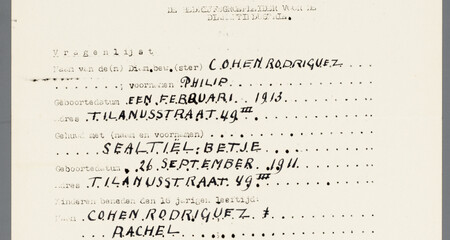 DE BEDRIJFSGEMEENDER VOOR DE
DIAMANTINDUSTRIE.
Vragenlijst
Naam van de(n) Diam.bew.(ster) COHEN RODRIGUEZ
; voornamen PHILIP
Geboortedatum EEN FEBRUARI 1913
Adres TILANUSSTRAAT 49 III
Gehuwd met (naam en voornamen)
SEALTIËL: BETJE
Geboortedatum 26 SEPTEMBER 1911
Adres TILANUSSTRAAT 49 III
Kinderen beneden den 16 jarigen leeftijd:
Naam COHEN RODRIGUEZ
RACHEL